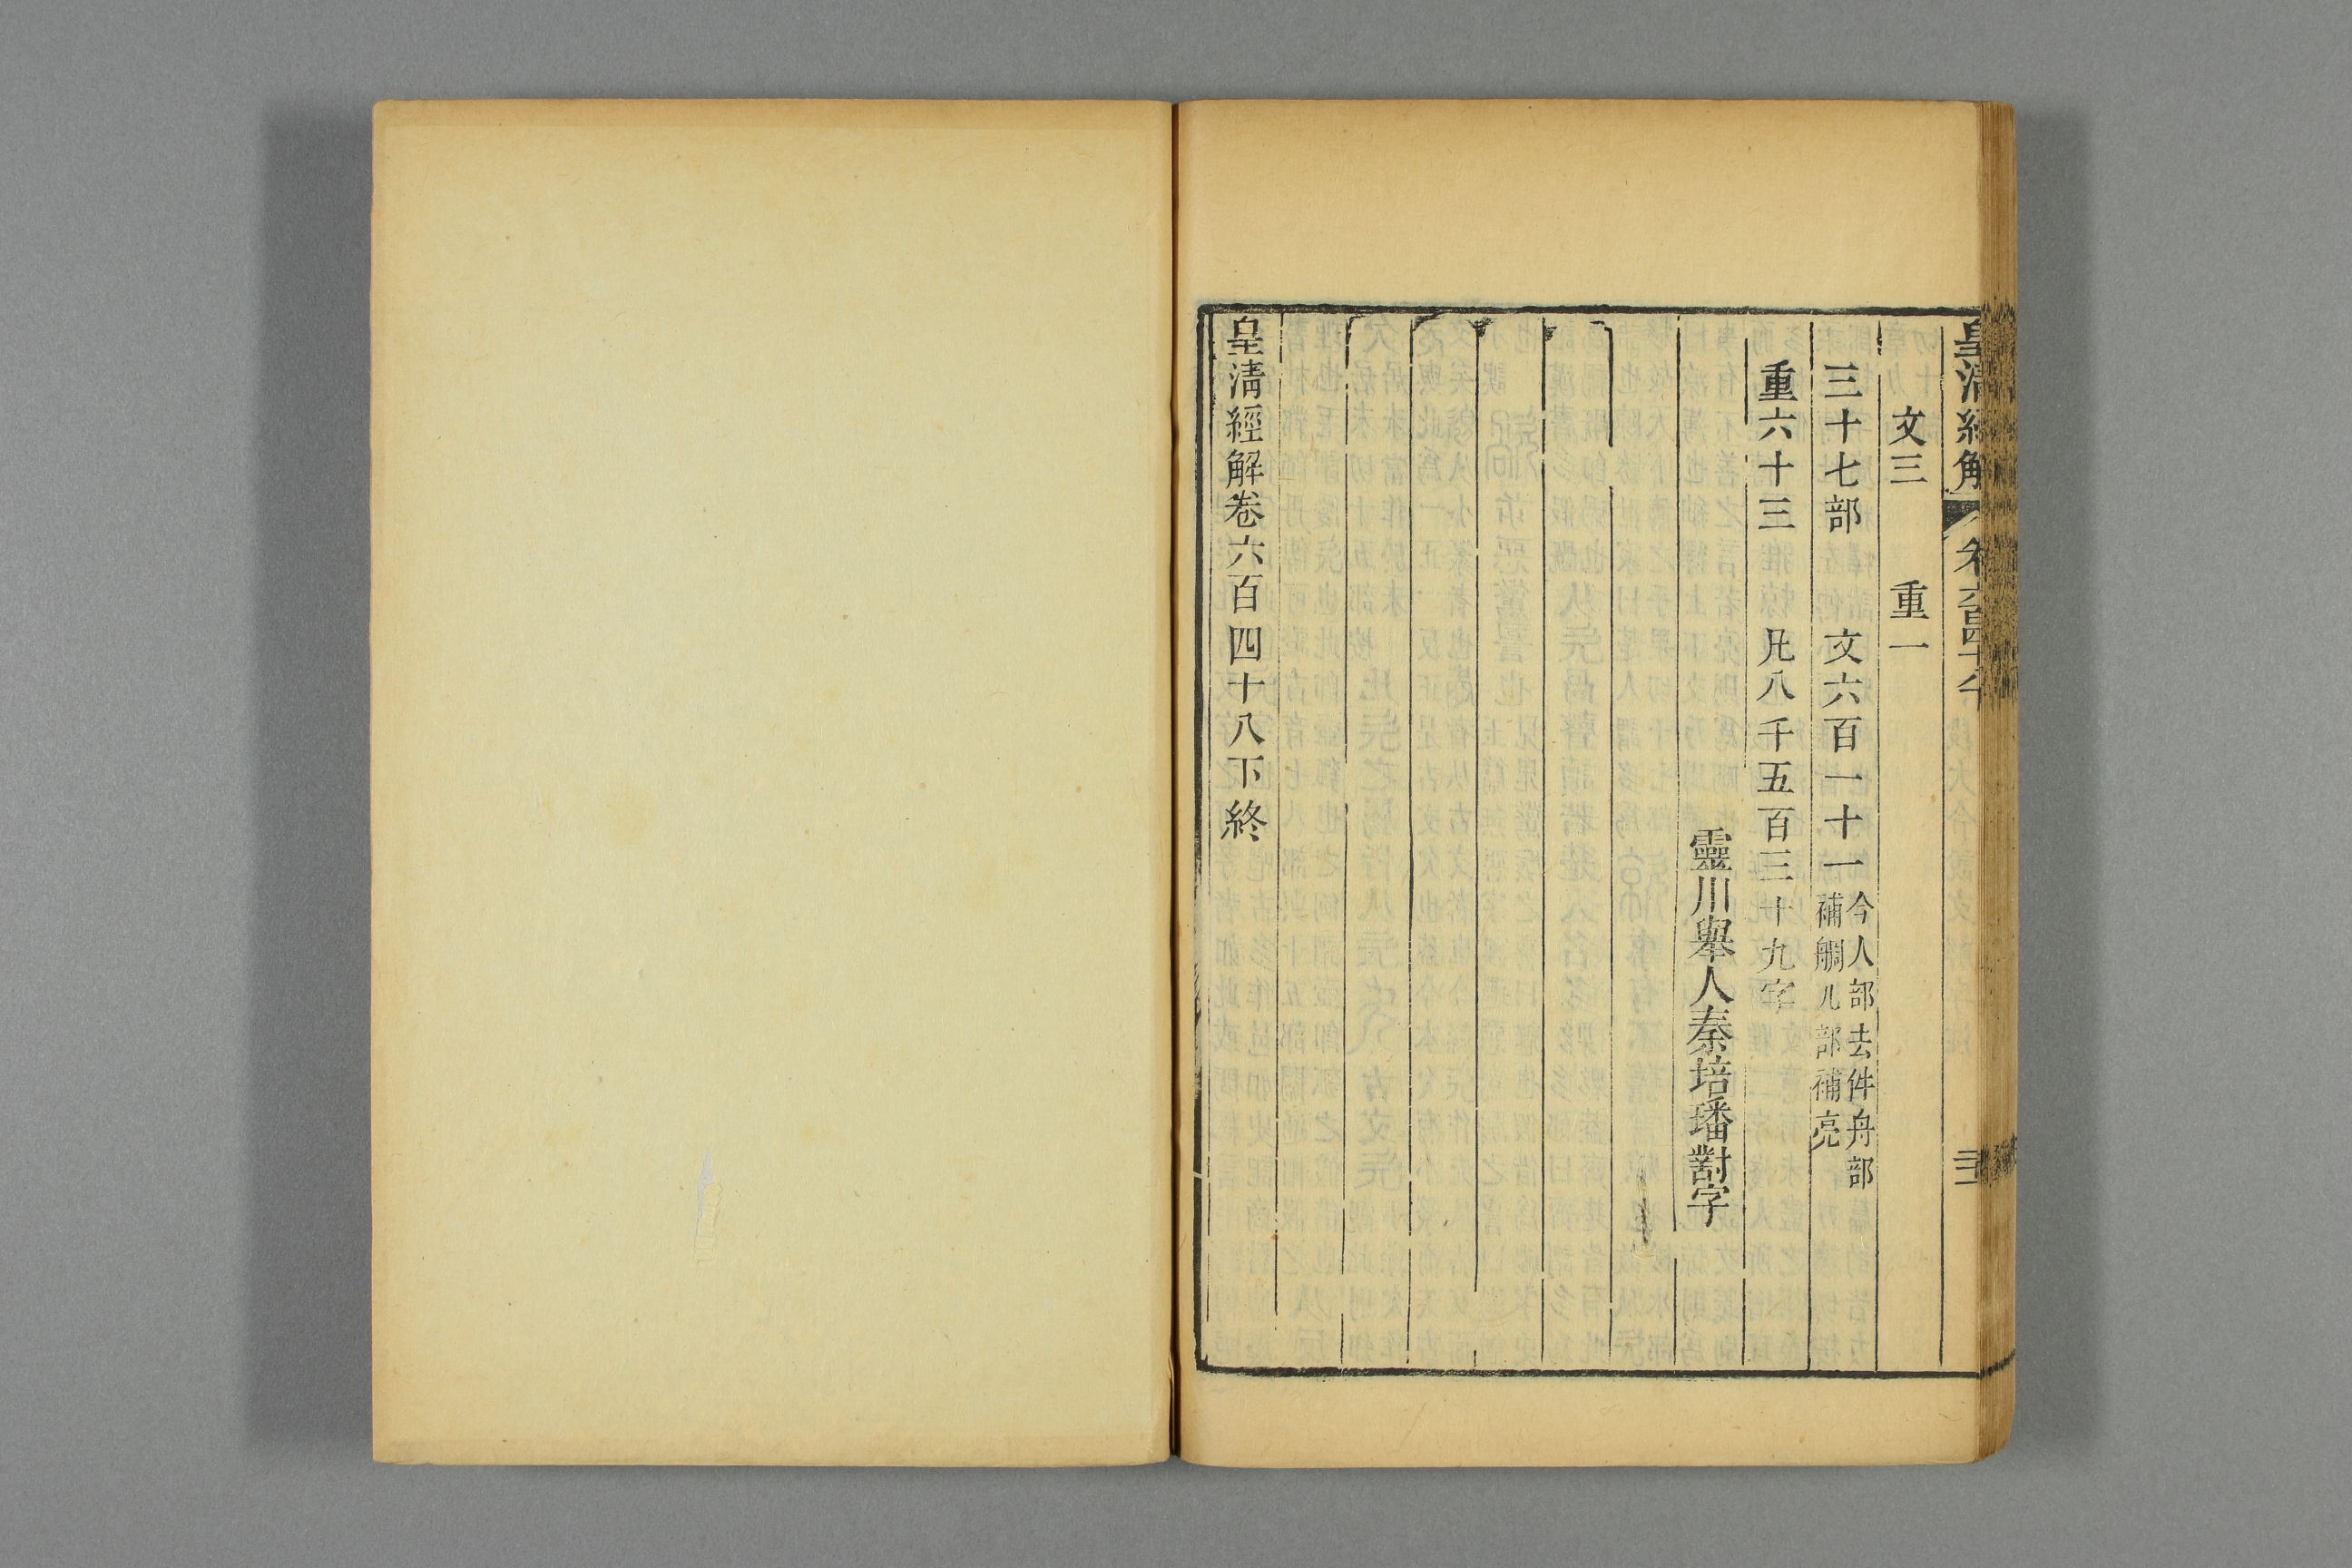 皇清經解
文三　重一
三十七部　文六百一十一
今人部去件舟部
補艒儿部補亮
重六十三　凡八千五百三十九字
靈川舉人秦培璠對字
皇清經解卷六百四十八下終